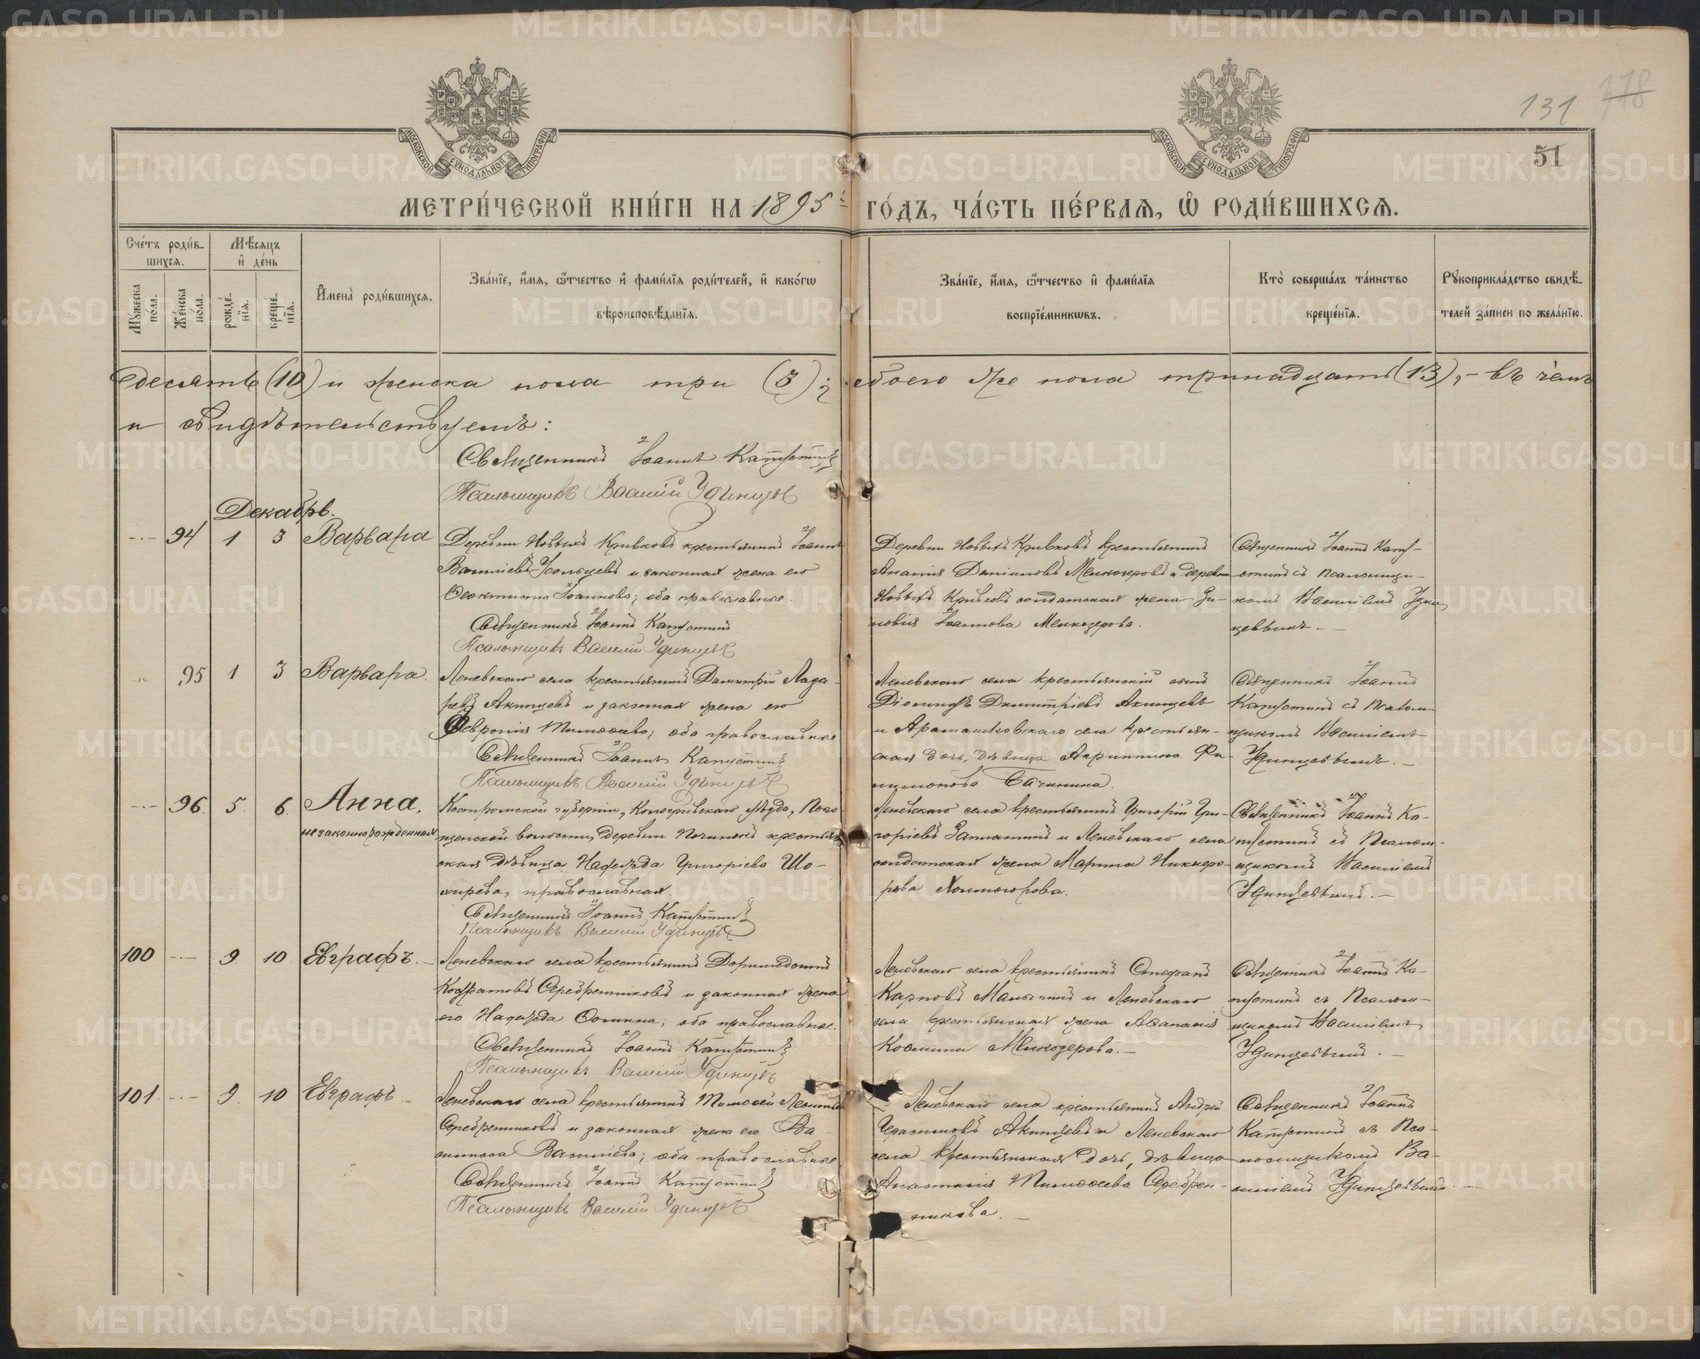 131 178
51
МЕТРИ́ЧЕСКОЙ КНИ́ГИ НА 1895 й ГО́ДЪ, ЧА́СТЬ ПЕ́РВАѦ, Ѽ РОДИ́ВШИХСѦ.
Сче́тъ роди́в-
шихсѧ.
Мѣ́сѧцъ
и҆ де́нь
Мꙋ́жеска пола.
Же́нска по́ла.
рожде́-
нїѧ.
креще́-
нїѧ.
И҆мена̀ роди́вшихсѧ.
Зва́нїе, и҆́мѧ, ѻ҆́тчество и҆ фами́лїѧ роди́телей, и҆ како́гѡ
вѣроисповѣ́данїѧ.
Зва́нїе, и҆́мѧ, ѻ҆́тчество и҆ фами́лїѧ
воспрїе́мникѡвъ.
Кто̀ соверша́лъ та́инство
креще́нїѧ.
Рꙋкоприкла́дство свидѣ́-
телей за́писи по жела́нїю.
десять (10) и женска пола три (3); обоего же пола тринадцать (13), – въ чемъ
и свидѣтельствуемъ:
Священникъ Іоаннъ Капустинъ
Псаломщикъ Василій Удинцевъ
Декабрь.
94 1 3 Варвара
Деревни Новыхъ Кривковъ крестьянинъ Іоаннъ
Василіевъ Усольцевъ и законная жена его
Ѳеоктиста Іоаннова; оба православные.
Священникъ Іоаннъ Капустинъ
Псаломщикъ Василій Удинцевъ
Деревни Новыхъ Кривковъ крестьянинъ
Ананія Даніиловъ Мелкозеровъ и деревни
Новыхъ Кривковъ солдатская жена Зи-
новія Іоаннова Мелкозерова.
Священникъ Іоаннъ Капу-
стинъ съ псаломщи-
комъ Василіемъ Удин-
цевымъ. –
95 1 3 Варвара.
Леневскаго села крестьянинъ Димитрій Лаза-
ревъ Акинцевъ и законная жена его
Февронія Тимоѳеева; оба православные
Священникъ Іоаннъ Капустинъ
Псаломщикъ Василій Удинцевъ
Леневскаго села крестьянскій сынъ
Діонисій Димитріевъ Акинцевъ
и Арамашковскаго села крестьян-
ская дочь, дѣвица Агриппина Фи-
Священникъ Іоаннъ
Капустинъ съ Псалом-
щикомъ Василіемъ
Удинцевымъ. –
96. 5. 6. Анна,
незаконнорожденная
Костромской губерніи, Кологривскаго уѣзда,
волости, деревни крестьян-
ская дѣвица Надежда Григоріева Шо-
хирева, православная
Священникъ Іоаннъ Капустинъ
Псаломщикъ Василій Удинцевъ
Леневскаго села крестьянинъ Григорій Гри-
горіевъ и Леневскаго села
солдатская жена Марина Никифо-
рова Холмогорова.
Священникъ Іоаннъ Ка-
пустинъ съ Псалом-
щикомъ Василіемъ
Удинцевымъ. –
100 9 10 Евграфъ. –
Леневскаго села крестьянинъ Доримедонтъ
Кодратовъ Серебренниковъ и законная жена
его Надежда Ѳомина; оба православные.
Священникъ Іоаннъ Капустинъ
Псаломщикъ Василій Удинцевъ
Леневскаго села крестьянинъ Стефанъ
Карповъ Манькинъ и Леневскаго
села крестьянская жена Аѳанасія
Космина Мелкозерова. –
Священникъ Іоаннъ Ка-
пустинъ съ Псалом-
щикомъ Василіемъ
Удинцевымъ. –
101. 9. 10 Евграфъ –
Леневскаго села крестьянинъ Тимоѳей Леонтьевъ
Серебренниковъ и законная жена его Ва-
силисса Василіева; оба православные
Священникъ Іоаннъ Капустинъ
Псаломщикъ Василій Удинцевъ
Леневскаго села крестьянинъ Андрей
Герасимовъ Акинцевъ и Леневскаго
села крестьянская дочь, дѣвица
Анастасія Тимоѳеева Серебрен-
никова. –
Священникъ Іоаннъ
Капустинъ съ Пса-
ломщикомъ Ва-
силіемъ Удинцевымъ. –
METRIKI.GASO-URAL.RU